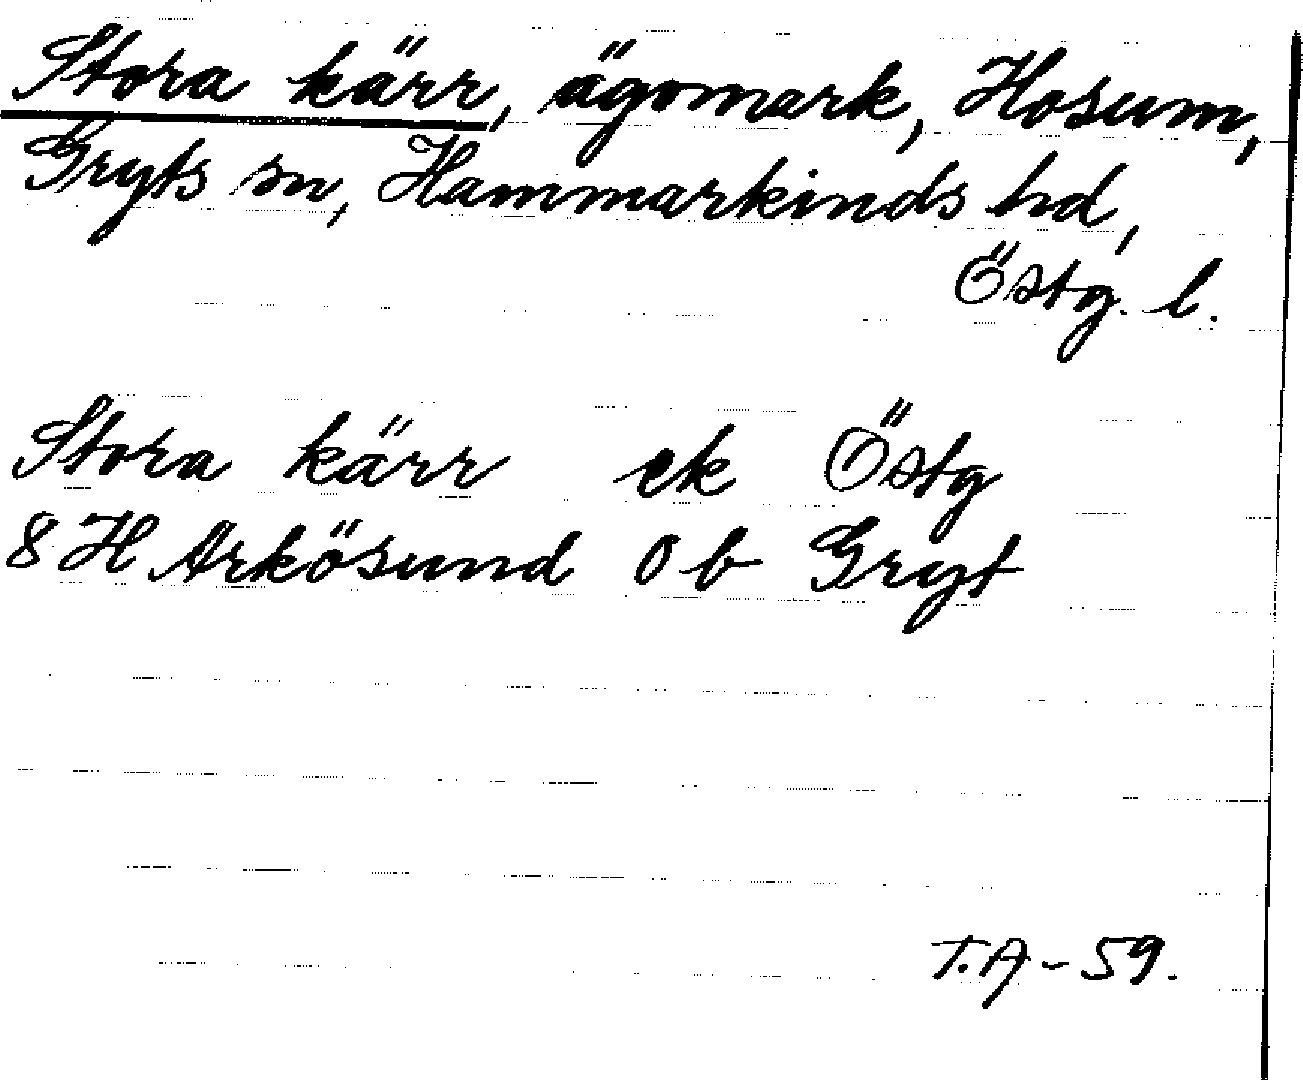 Stora kärr, ägomark, Hosum,
Gryts sn, Hammarkinds hd,
Östg. l.
Stora kärr ek Östg
8 H Arkösund 0 b Gryt
T.A-59.